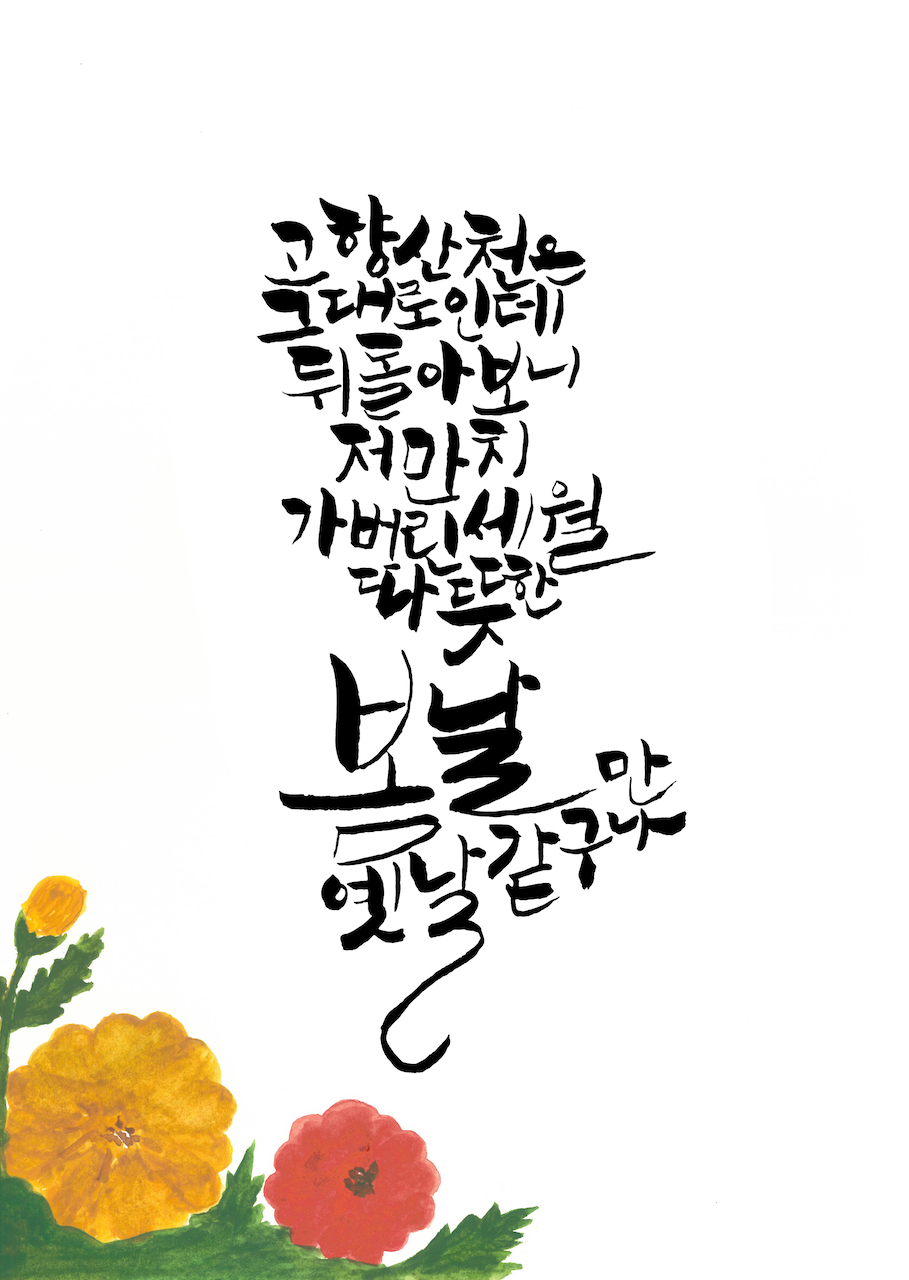 고향산천은
그대로인데
뒤돌아보니
저만치
가버린세월
따듯한
봄날만
옛날같구나